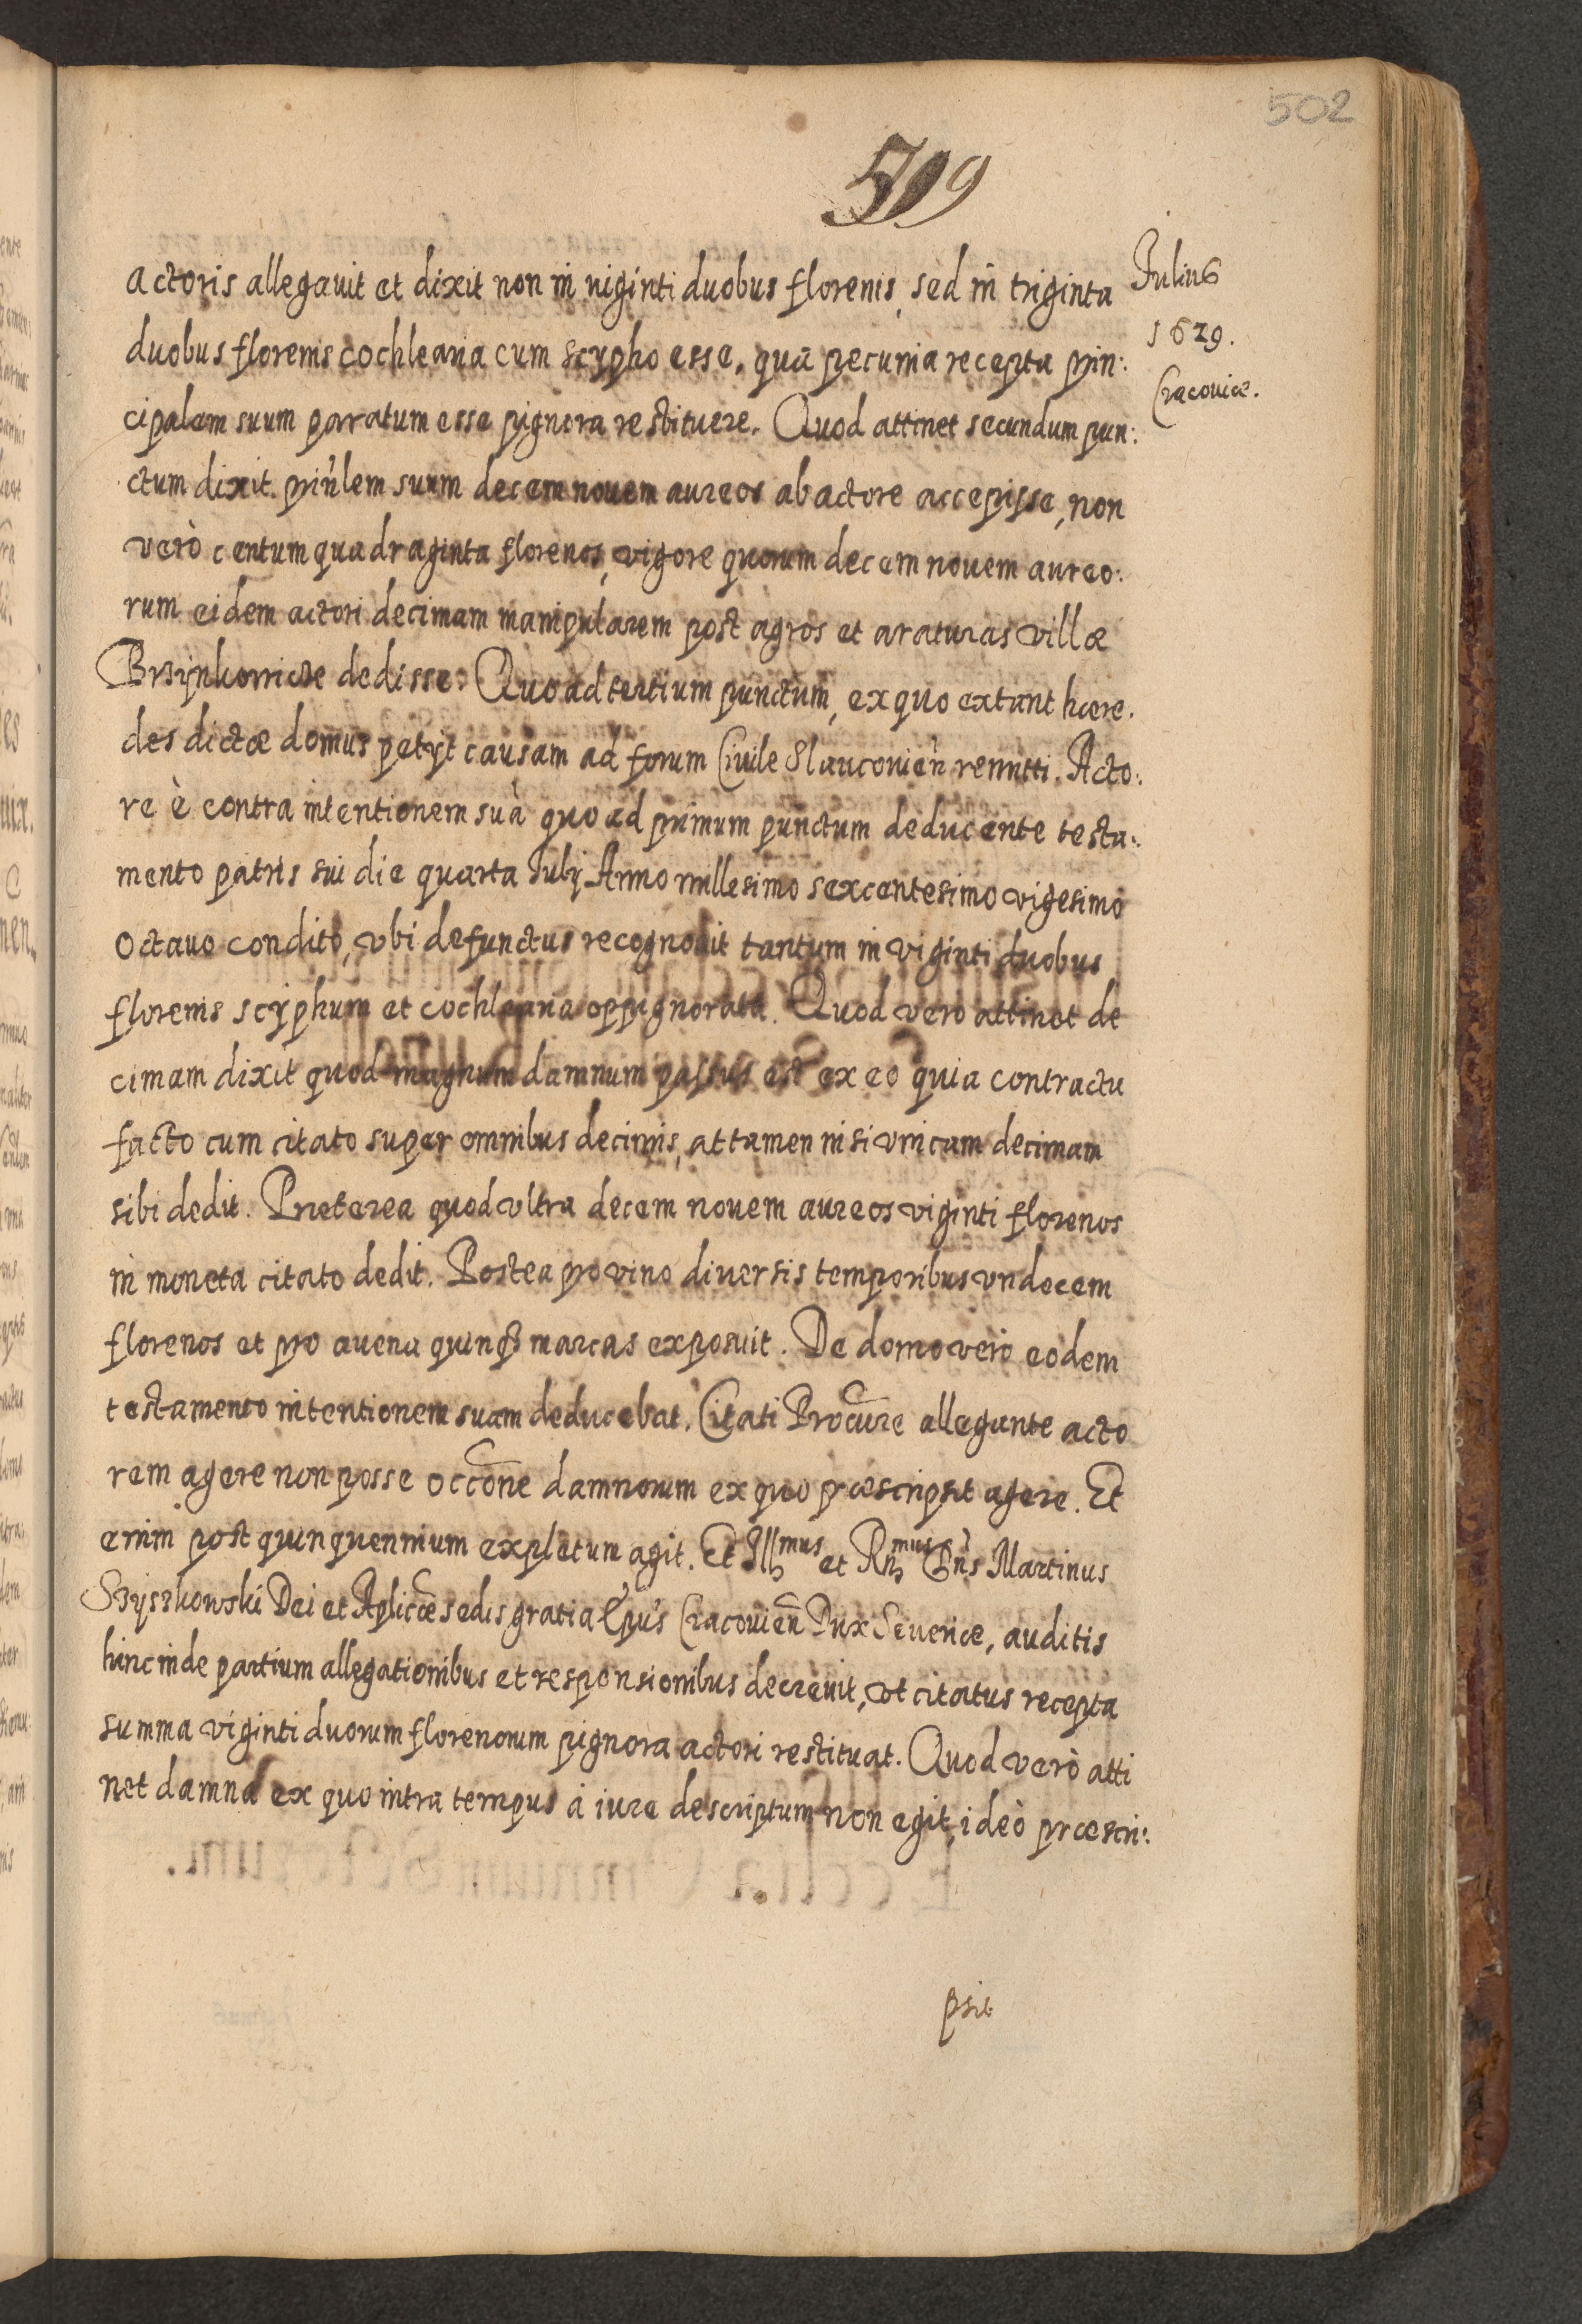 502
509
Julius
1629.
Cracoviæ.
actoris allegavit et dixit non in viginti duobus florenis, sed in triginta
duobus florenis cochlearia cum scypho esse, quâ pecunia recepta prin:
cipalem suum paratum esse pignora restituere. Quod attinet secundum pun:
ctum dixit. prin̄lem suum decem novem aureos ab actore accepisse, non
verò centum quadraginta florenos, vigore quorum decem novem aureo:
rum eidem actori decimam manipularem post agros et araturas villæ
dedisse. Quo ad tertium punctum, ex quo extant hære.
des dictæ domus petijt causam ad forum Civile Slauconien̄ remitti. Acto:
re è contra intentionem suã quo ad primum punctum deducente testa:
mento patris sui die quarta Julij Anno millesimo sexcentesimo vigesimo
octauo condito, vbi defunctus recognouit tantum in viginti duobus
florenis scyphum et cochlearia oppignorata. Quod vero attinet de
cimam dixit quod magnum damnum passus est ex eo quia contractu
facto cum citato super omnibus decimis, attamen nisi vnicam decimam
sibi dedit. Præterea quod vltra decem novem aureos viginti florenos
in moneta citato dedit. Postea pro vino diversis temporibus vndecem
florenos et pro avena quinq3 marcas exposuit. De domo verò eodem
testamento intentionem suam deducebat. Citati Procure allegante acto
rem agere non posse occōne damnorum ex quo præscripsit agere. Et
enim post quinquennium expletum agit. Et Illmus et Rnmus Dn̄s Martinus
Szyszkowski Dei et Aplicæ sedis gratia Epu̅s Cracouien̄ Dux Seueriæ, auditis
hinc inde partium allegationibus et responsionibus decrevit, vt citatus recepta
summa viginti duorum florenorum pignora actori restituat. Quod verò atti
net damna ex quo intra tempus à iure descriptum non egit, ideò præscri:
psit